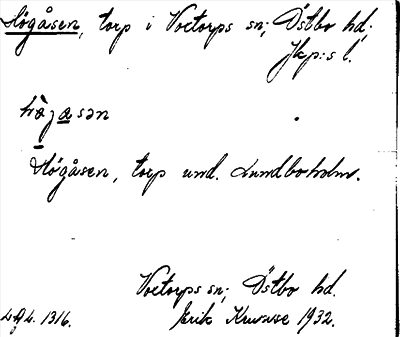 Högåsen, torp i Voetorps sn; Östbo hd;
Jkp:s l.
hö̀gasən
Högåsen, torp und. Lundboholm.
Voetorps sn; Östbo hd.
Erik Kruuse 1932.